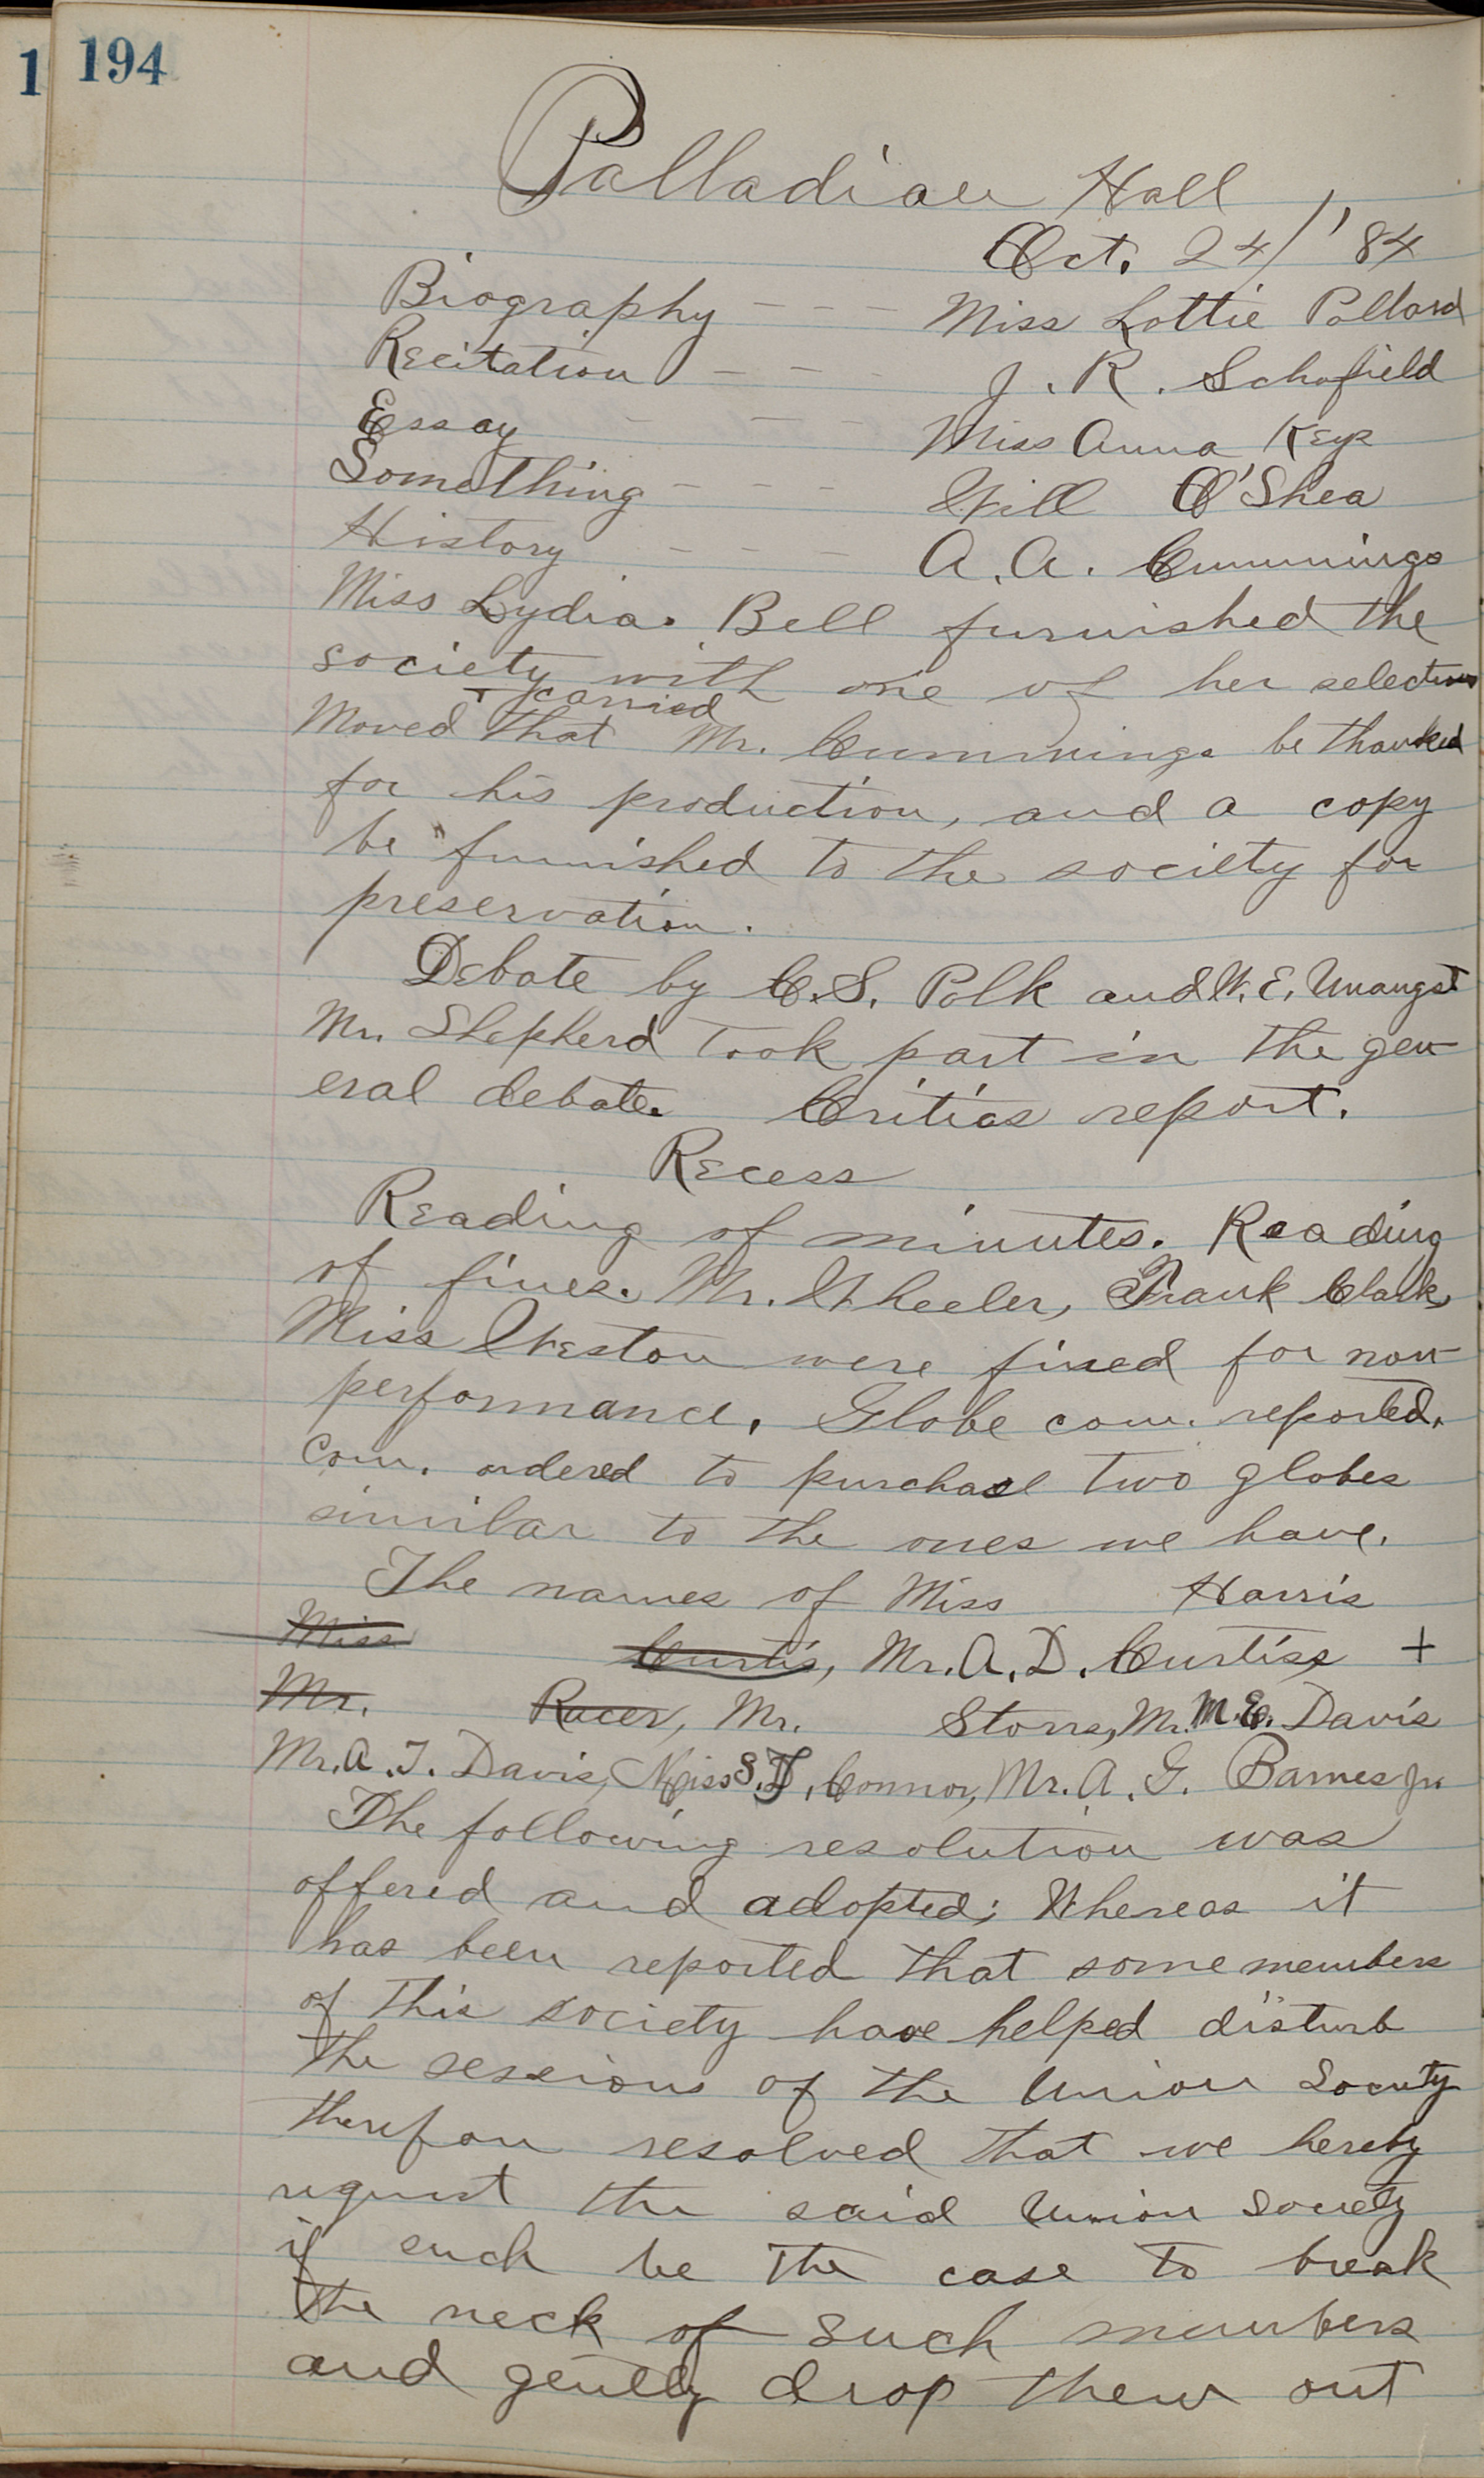 1 194
Palladian Hall
Oct. 24/ '84
Biography - - - Miss Lottie Pollard
Recitation - - - J. R. Schofield
Essay - - - Miss Anna Keys
Something - - - Will O'Shea
History - - - A. A. Cummings
Miss Lydia Bell furnished the
society with one of her selections
+ carried
Moved that Mr. Cummings be thanked
for his production, and a copy
be furnished to the society for
preservation.
Debate by C. S. Polk and W. E. Unangst
Mr. Shepherd took part in the gen-
eral debate. Critics report.
Recess
Reading of minutes. Reading
of fines. Mr. Wheeler, Frank Clark,
Miss Weston were fined for non-
performance. Globe com. reported.
Com. ordered to purchase two globes
similar to the ones we have.
The names of Miss Harris
Miss Curtis, Mr. A. D. Curtiss +
Mr. Racer, Mr. Storrs, Mr. M. E. Davis
Mr. A. J. Davis, Miss S. T. Connor, Mr. A. G. Barnes Jr.
The following resolution was
offered and adopted; Whereas it
has been reported that some members
of this society have helped disturb
the sessions of the Union Society
therefore resolved that we hereby
request the said Union Society
if such be the case to break
the neck of such members
and gently drop them out